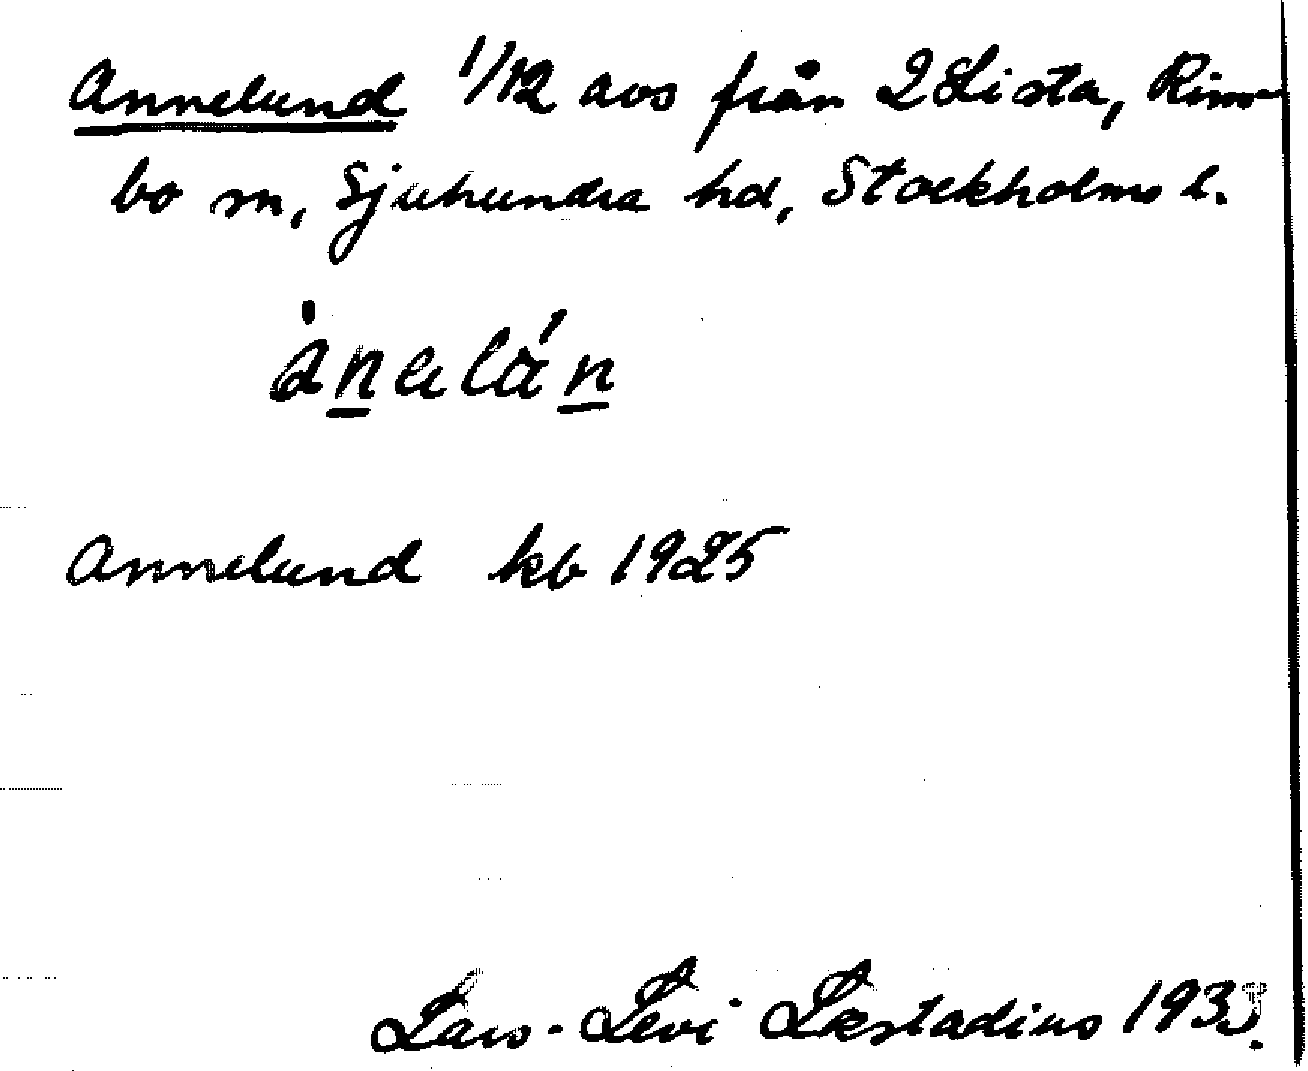 Annelund 1/12 avs från 2 Lista, Rim-
bo sn, Sjuhundra hd, Stockholms l.
Annelund kb 1925
Lars-Levi Læstadius 193